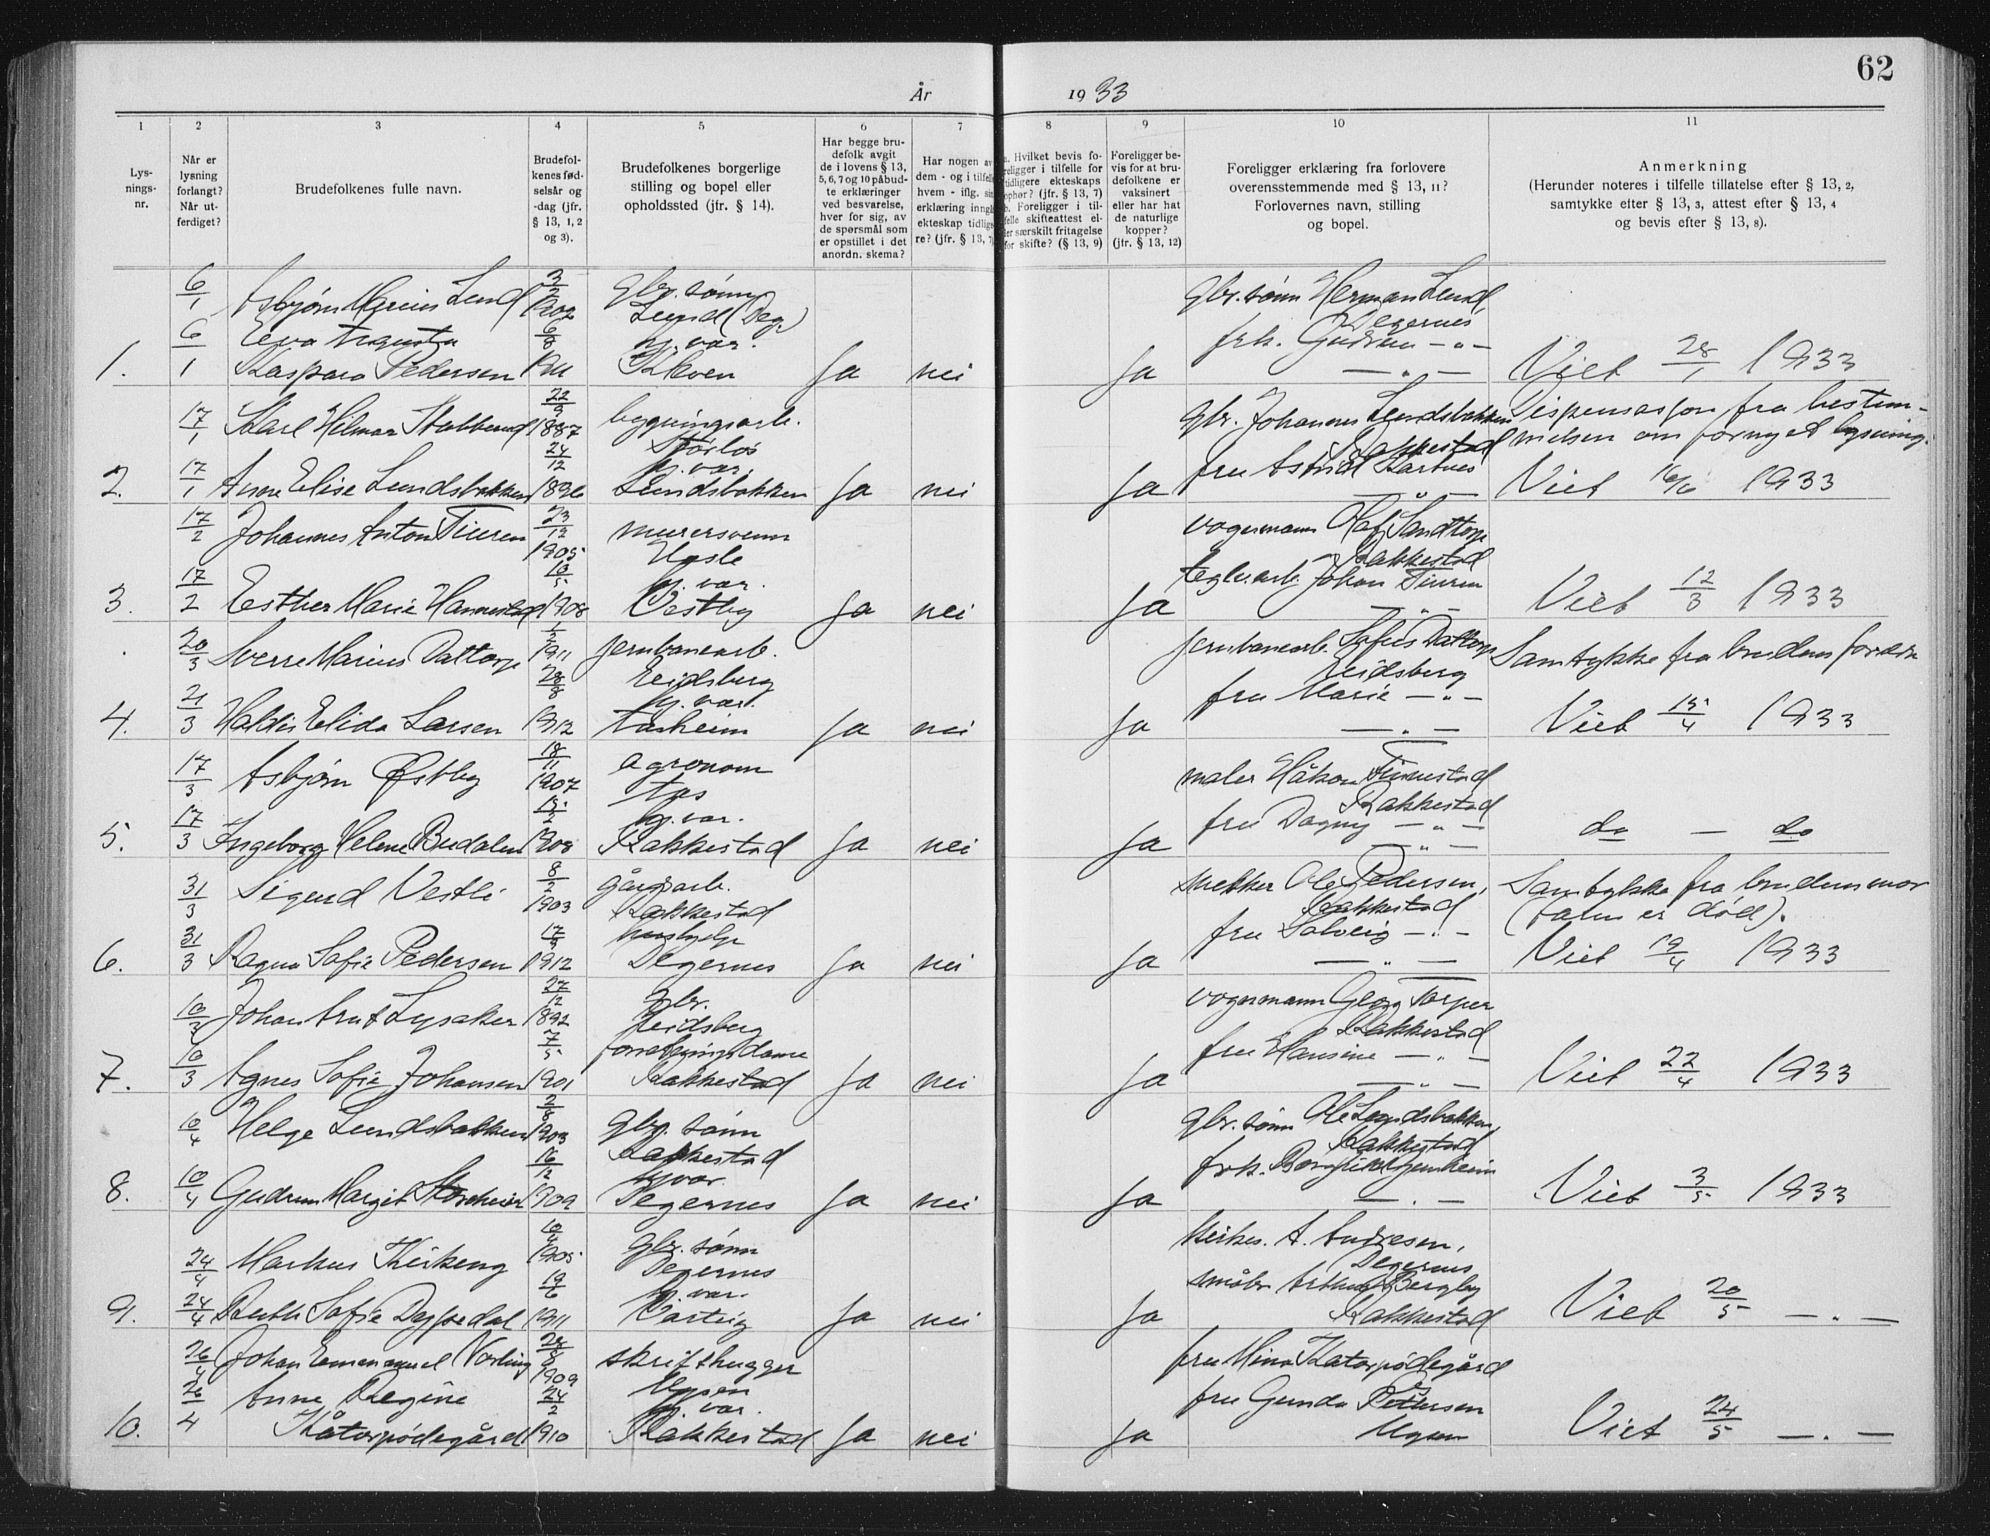 62
År 1933
1 2 3 4 5 6 7 8 9 10 11
Lysningsnr.
Når er lysning forlangt? Når utferdiget?
Brudefolkenes fulle navn.
Brudefolkenes fødselsår og -dag (jfr. § 13, 1, 2 og 3).
Brudefolkenes borgerlige stilling og bopel eller opholdssted (jfr. § 14).
Har begge brudefolk avgit de i lovens § 13, 5, 6, 7 og 10 påbudte erklæringer ved besvarelse, hver for sig, av de spørsmål som er opstillet i det anordn. skema?
Har nogen av dem - og i tilfelle hvem - iflg. sin erklæring inngått ekteskap tidligere? (jfr. § 13, 7)
a. Hvilket bevis foreligger i tilfelle for tidligere ekteskaps ophør? (jfr. § 13, 7)
b. Foreligger i tilfelle skifteattest eller særskilt fritagelse for skifte? (§ 13, 9)
Foreligger bevis for at brudefolkene er vaksinert eller har hat de naturlige kopper? (jfr. § 13, 12)
Foreligger erklæring fra forlovere overensstemmende med § 13, 11? Forlovernes navn, stilling og bopel.
Anmerkning
(Herunder noteres i tilfelle tillatelse efter § 13, 2, samtykke efter § 13, 3, attest efter § 13, 4 og bevis efter § 13, 8).
6/1 Asbjørn Marius Lund 1902 gbr. sønn Lund (Deg.) gbr. sønn Herman Lund, Degernes
1. 6/1 Eva Augusta Kaspara Pedersen 6/8 1911 hj. var. Kleven Ja nei Ja frk. Gudrun — " — Viet 28/1 1933
17/1 Karl Hilmar Stubberud 22/9 1887 bygningsarb. gbr. Johannes Lundsbakken Rakkestad Dispensasjon fra bestemmelsen om fornyet lysning.
2. 17/1 Anne Elise Lundsbakken 24/12 1896 hj. var. Lundsbakken Ja nei Ja fru Astrid — " — Viet 16/6 1933
17/2 Johannes Anton Tiuren 23/12 1905 murersvenn vognmann Olaf Sandtorp Rakkestad
3. 17/2 Esther Marie Hannestad 10/5 1908 hj. var. Østby Ja nei Ja teglv.arb. Johan Tiuren — " — Viet 12/3 1933
20/3 Sverre Marius Dattorp 1911 jernbanearb. Eidsberg jernbanearb. Sofus Dattorp Eidsberg Samtykke fra brudens foreldre
4. 21/3 Haldis Elida Larsen 28/8 1912 hj. var. Åsheim Ja nei Ja fru Marie — " — Viet 15/4 1933
17/3 Asbjørn Østby 18/11 1907 agronom Ås maler Håkon Finnestad Rakkestad
5. 17/3 Ingeborg Helene Budalen 15/2 1908 hj. var. Rakkestad Ja nei Ja fru Dagny — " — do — do
31/3 Sigurd Vestli 8/2 1903 gårdsarb. Rakkestad snekker Ole Pedersen, Rakkestad Samtykke fra brudens mor (faren er død).
6. 31/3 Ragna Sofie Pedersen 17/9 1912 hushjelp Degernes Ja nei Ja fru Solveig — " — Viet 19/4 1933
10/3 Johan Arnt Lysaker 27/12 1892 gbr. Eidsberg vognmann Georg Torper Rakkestad
7. 10/3 Agnes Sofie Johansen 7/5 1901 forretningsdame Rakkestad Ja nei Ja fru Hansine — " — Viet 22/4 1933
10/4 Helge Lundsbakken 2/8 1903 gbr. sønn Rakkestad gbr. sønn Ole Lundsbakken, Rakkestad
8. 10/4 Gudrun Margit 16/2 1909 hj. var. Degernes Ja nei Ja frk. — " — Viet 3/5 1933
24/4 Markus Kirkeng 10/4 1905 gbr. sønn Degernes kirkes. A. Andresen, Degernes
9. 24/4 Ruth Sofie Dypedal 19/6 1911 hj. var. Ja nei Ja småbr. Arthur Bergby Rakkestad Viet 20/5 — " —
26/4 Johan Emmanuel 28/8 1909 skrifthugger Mysen fru Mina Katorpødegård
10. 26/4 Anne Regine Kåtorpødegård 24/2 1910 hj. var. Rakkestad Ja nei Ja fru Gunda Pettersen Mysen Viet 24/5 — " —